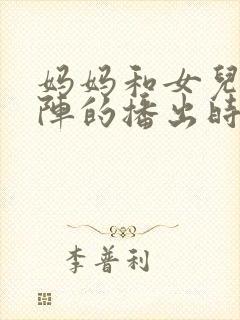 妈妈和女兒
陣的播出时
李普利